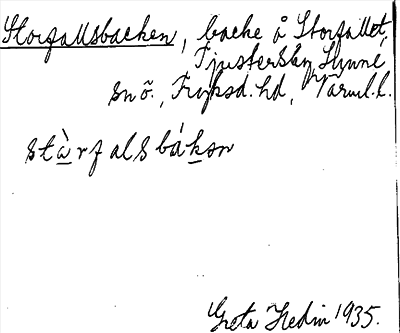 Storfallsbacken, backe å Storfallet,
Tjustersby, Sunne
snö., Fryksd. hd, Värml. l.
stàrfalsbákən
Greta Hedin 1935.